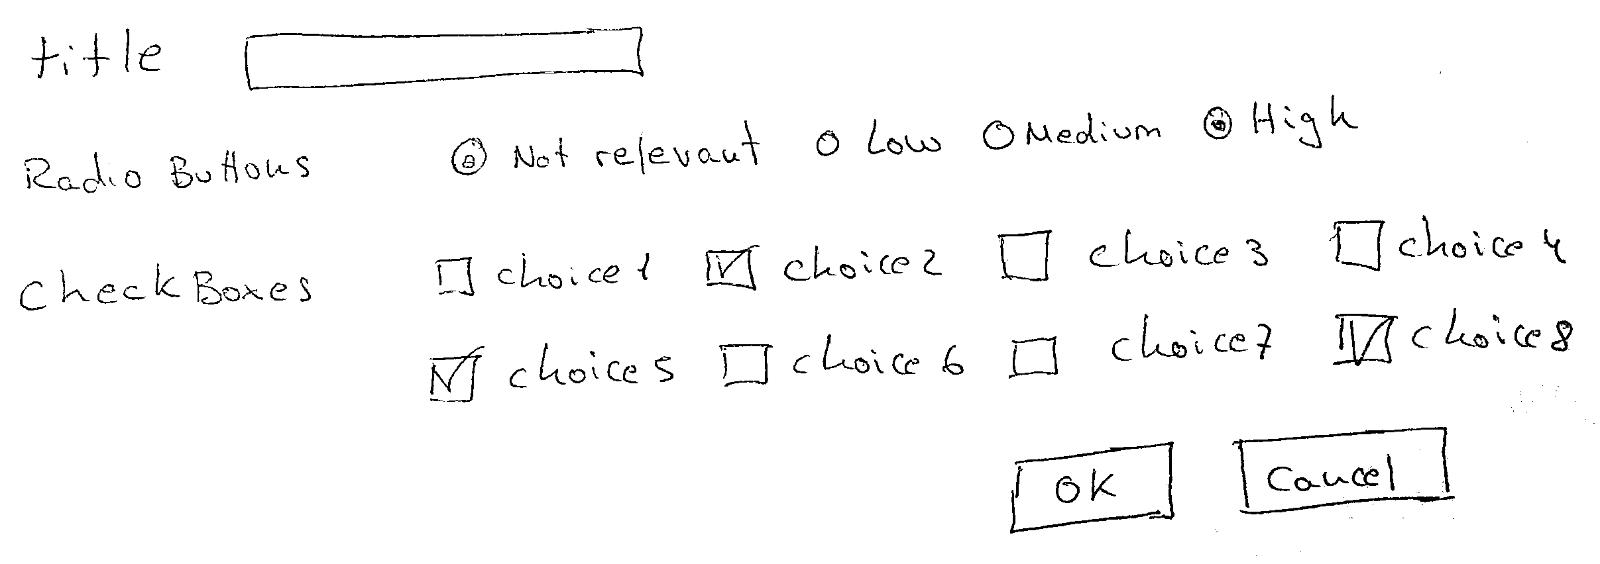 title
Radio Buttons Not relevant Low Medium High
Check Boxes choice 1 choice 2 choice 3 choice 4
choice 5 choice 6 choice 7 choice 8
OK Cancel